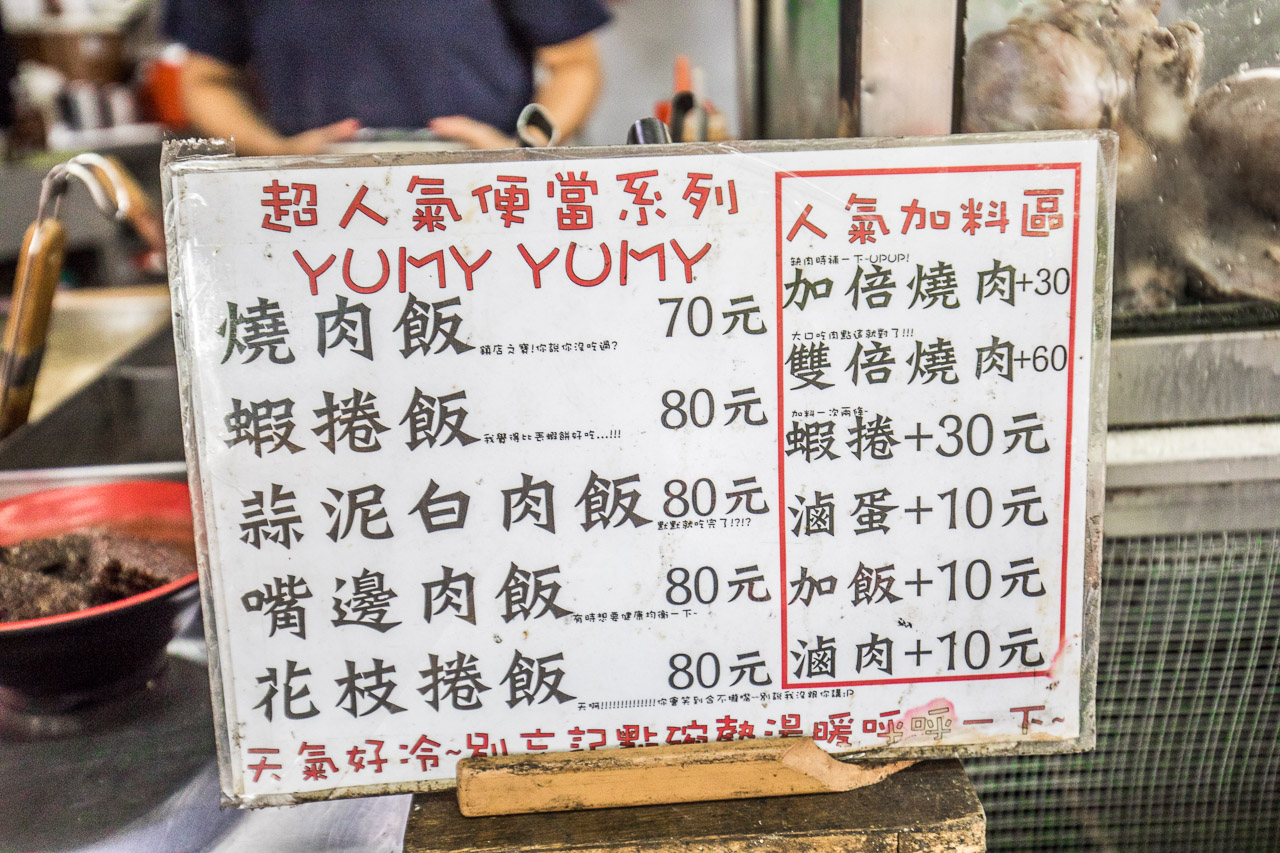 超人氣便當系列
YUMY YUMY
燒肉飯 70元
鎮店之寶!你說你沒吃過?
蝦捲飯 80元
我覺得比丟蝦餅好吃...!!!
蒜泥白肉飯 80元
點點就吃完了!?!?
嘴邊肉飯 80元
有時想要健康均衡一下~
花枝捲飯 80元
天啊!!!!!!!!!!!!!!你要笑到合不攏嘴~別說我沒跟你講:P
人氣加料區
缺肉時補一下~UPUP!
加倍燒肉+30
大口吃肉點這就對了!!!
雙倍燒肉+60
加料一次兩條~
蝦捲+30元
滷蛋+10元
加飯+10元
滷肉+10元
天氣好冷~別忘記點碗熱湯暖呼呼一下~